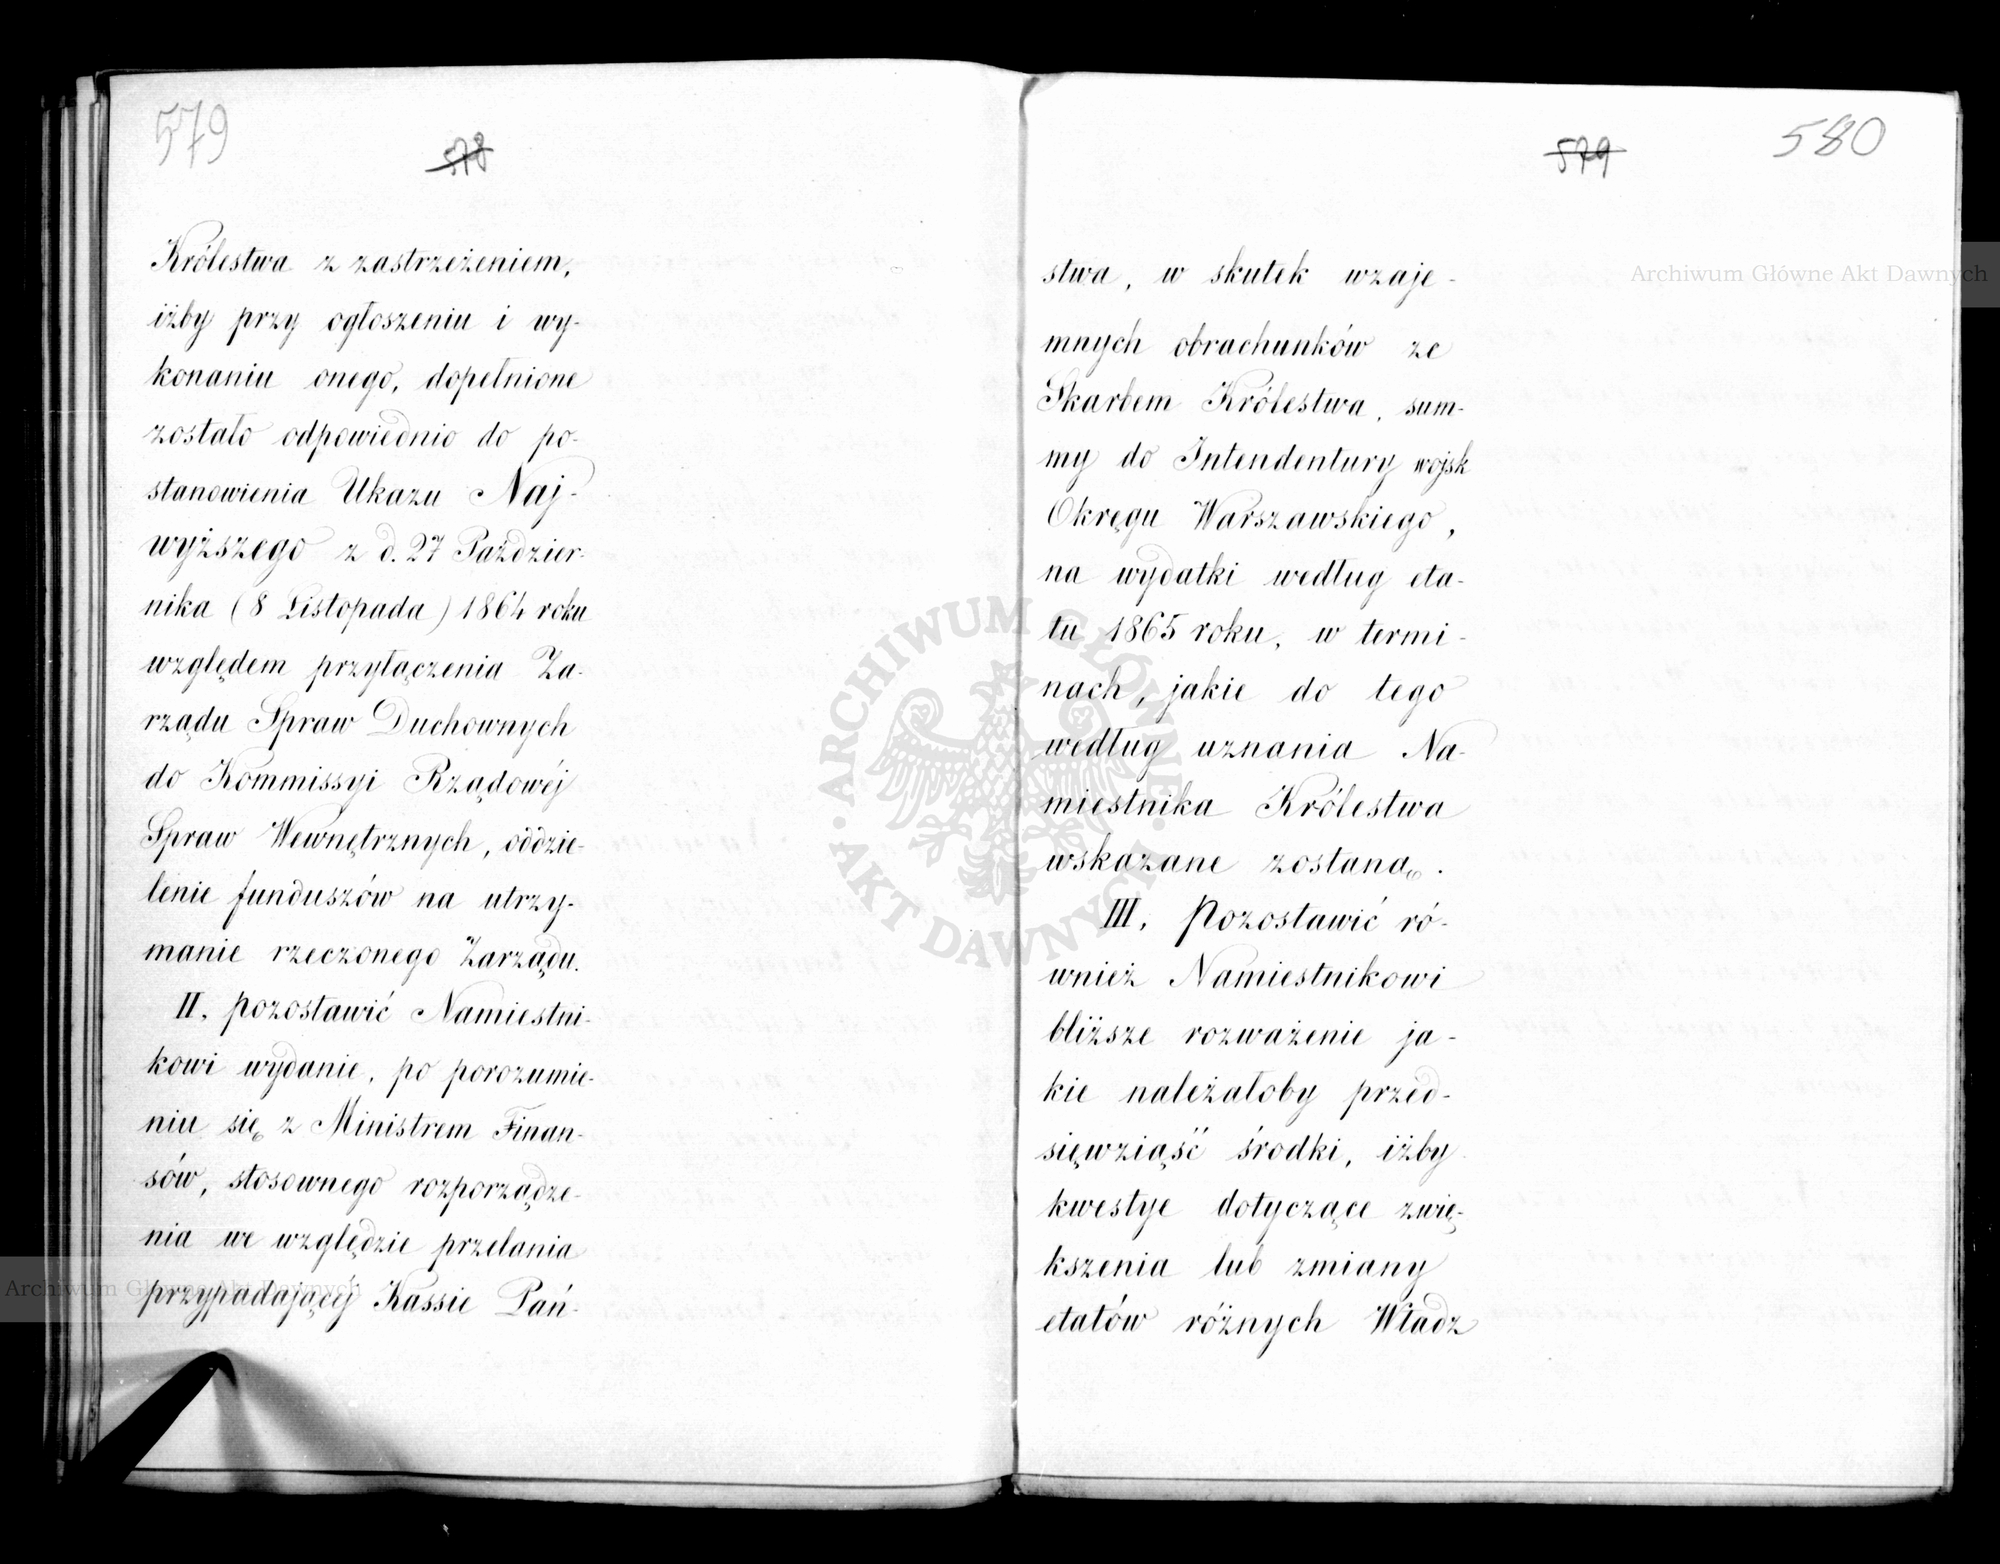 579
578
Królestwa z zastrzeżeniem,
iżby przy ogłoszeniu i wy-
konaniu onego, dopełnione
zostało odpowiednio do po-
stanowienia Ukazu Naj-
wyższego z d. 27 Paździer-
nika (8 Listopada) 1864 roku
względem przyłączenia Za-
rządu Spraw Duchownych
do Kommissyi Rządowéj
Spraw Wewnętrznych, oddzie-
lenie funduszów na utrzy-
manie rzeczonego Zarządu.
II, pozostawić Namiestni-
kowi wydanie, po porozumie-
niu się z Ministrem Finan-
sów, stosownego rozporządze-
nia we względzie przelania
przypadającéj Kassie Pań-
579
580
stwa, w skutek wzaje-
mnych obrachunków ze
Skarbem Królestwa, sum-
my do Intendentury wojsk
Okręgu Warszawskiego,
na wydatki według eta-
tu 1865 roku, w termi-
nach, jakie do tego
według uznania Na-
miestnika Królestwa
wskazane zostaną.
III, Pozostawić ró-
wnież Namiestnikowi
bliższe rozważenie ja-
kie należałoby przed-
sięwziąść środki, iżby
kwestye dotyczące zwię-
kszenia lub zmiany
etatów różnych Władz
Archiwum Główne Akt Dawnych
Archiwum Główne Akt Dawnych
ARCHIWUM GŁÓWNE · AKT DAWNYCH ·